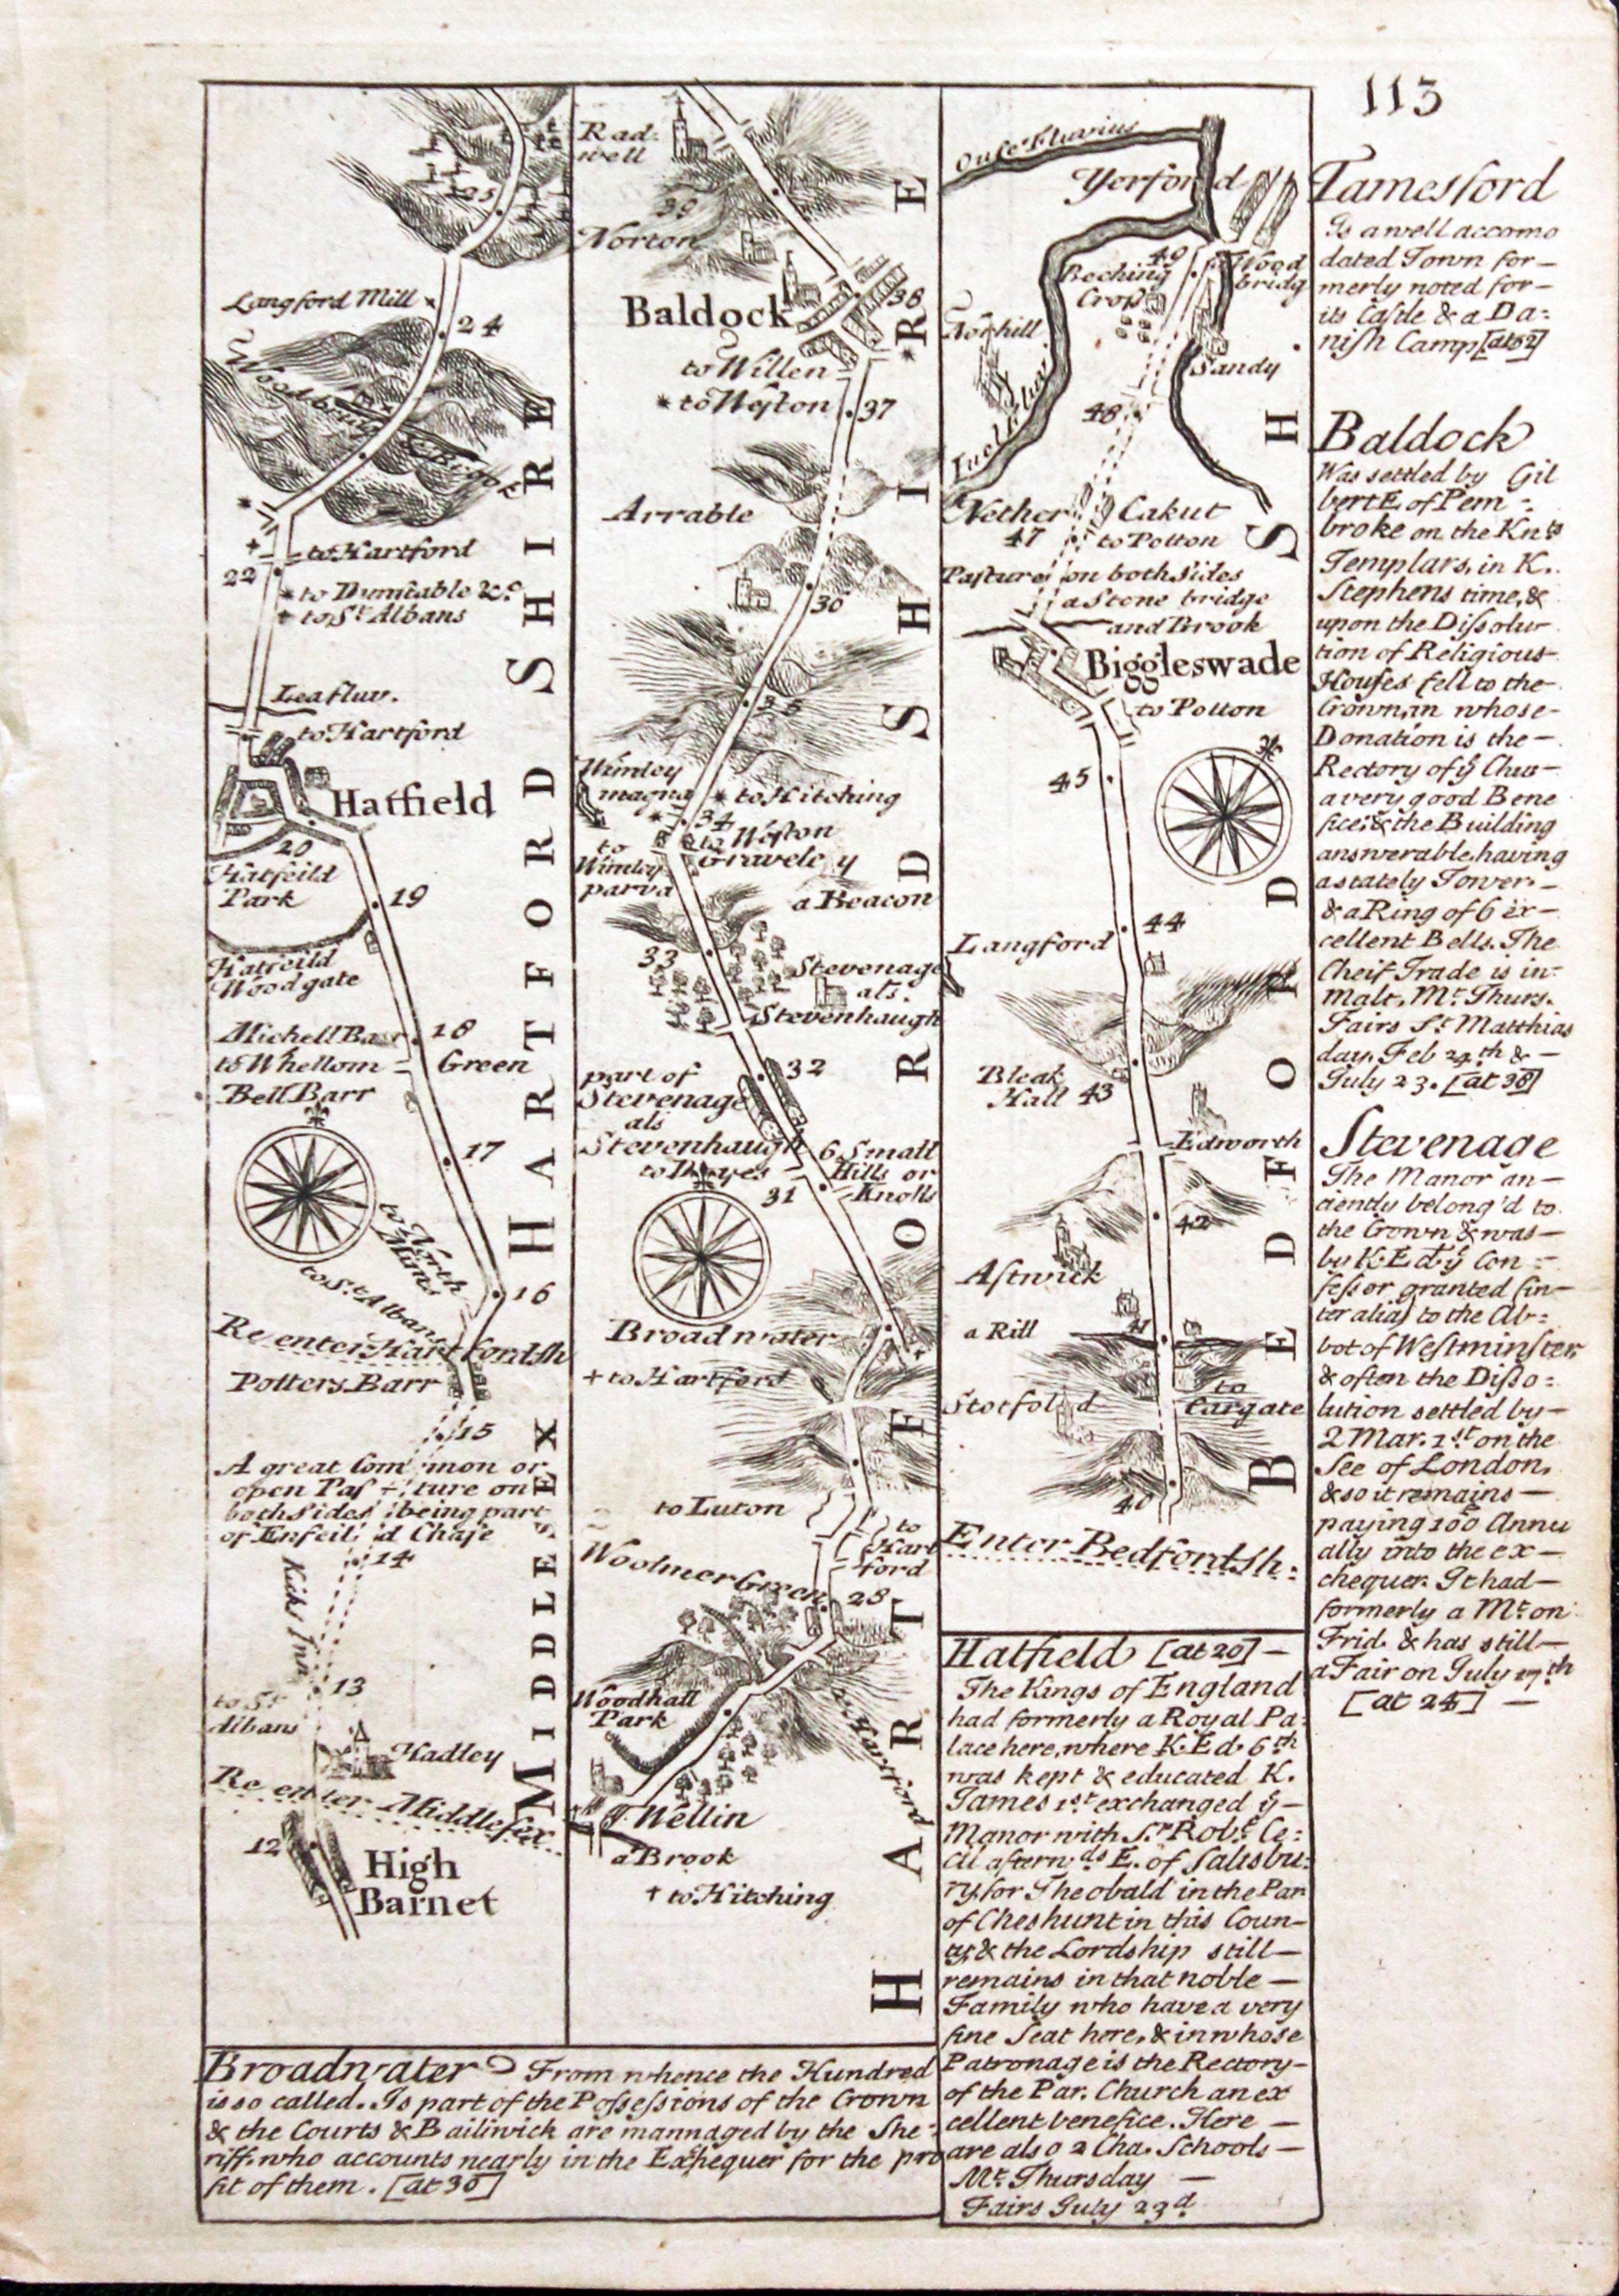 113
Langford Mill
25
24
Woodbury
to Hartford
22
to Dunstable &c.
to St. Albans
Lea fluv.
to Hartford
Hatfield
20
Hatfeild
Park
19
Hatfeild
Woodgate
Michell Barr 18
to Whellom Green
Bell Barr
17
to North
Mims
to St. Albans
16
Re enter Hartfordsh
Potters Barr
15
A great Common or
open Pasture on
both sides being part
of Enfeild Chase
14
Kiks Inn
13
to St
Albans
Hadley
Re enter Middlesex
12
High
Barnet
HARTFORD SHIRE
MIDDLESEX
Rad
well
39
Norton
Baldock
38
to Willen
to Weston 37
Arrable
36
35
Wimley
magna
to Hitching
34
to Weston
Graveley
to
Wimley
parva
a Beacon
33
Stevenage
als.
Stevenhaugh
32
part of
Stevenage
als
Stevenhaugh
6 Small
Hills or
Knolls
31
Broadwater
+ to Hartford
to Luton
to
Hart
ford
Woolmer Green
28
Woodhall
Park
to Hartford
Wellin
a Brook
† to Hitching
HARTFORDSHIRE
Ouse Fluvius
Yorford
49
Beching
Crofs
Wood
bridg
Northill
Sandy
48
Ivel Fluvius
Nether Cakut
47 to Potton
Pasture on both Sides
a Stone bridge
and Brook
Biggleswade
to Potton
45
44
Langford
Bleak
Hall 43
Edworth
42
Astwick
a Rill
41
Stotfold
to
Cargate
40
Enter Bedfordsh:
BEDFORDSH
Tamesford
Is a well accomo
dated Town for—
merly noted for—
its Castle & a Da:
nish Camp [at 52]
Baldock
Was settled by Gil
bert E. of Pem-
broke on the Knts
Templars, in K.
Stephens time, &
upon the Dissolu-
tion of Religious
Houses fell to the—
Crown, in whose—
Donation is the—
Rectory of ye Chu—
a very good Bene
fice; & the Building
answerable, having
a stately Tower—
& a Ring of 6 ex—
cellent Bells. The
Cheif Trade is in-
malt. Mt. Thurs.
Fairs St. Matthias
day, Feb 24th & —
July 23. [at 38]
Stevenage
The Manor an—
ciently belong'd to
the Crown & was—
by K. Ed. ye Con-
fessor granted (in-
ter alia) to the Ab:
bot of Westminster
& often the Disso:
lution settled by—
2 Mar. 1st. on the
See of London,
& so it remains—
paying 100 Annu
ally into the ex—
chequer. It had—
formerly a Mt. on
Frid. & has still—
a Fair on July 17th
[at 24] —
Hatfield [at 20] —
The Kings of England
had formerly a Royal Pa:
lace here, where K. Ed. 6th
was kept & educated K.
James 1st. exchanged ye—
Manor with Sr. Robt. Ce:
cil afterwds E. of Salisbu:
ry, for Theobald in the Par
of Cheshunt in this Coun—
ty; & the Lordship still—
remains in that noble—
Family who have a very
fine Seat here, & in whose
Patronage is the Rectory—
of the Par. Church an ex
cellent benefice. Here—
are also 2 Cha. Schools—
Mt. Thursday —
Fairs July 23d.
Broadwater From whence the Hundred
is so called. Is part of the Possessions of the Crown
& the Courts & Bailiwick are mannaged by the She-
riff, who accounts nearly in the Exchequer for the pro
fit of them. [at 30]